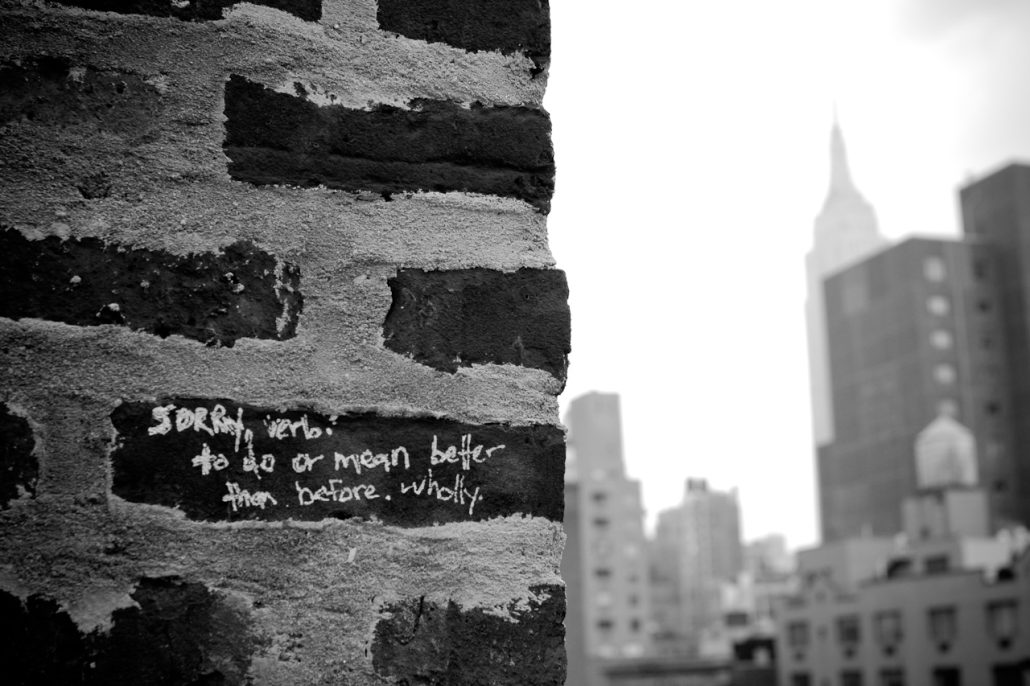 SORRY, verb:
to do or mean better
than before. wholly.